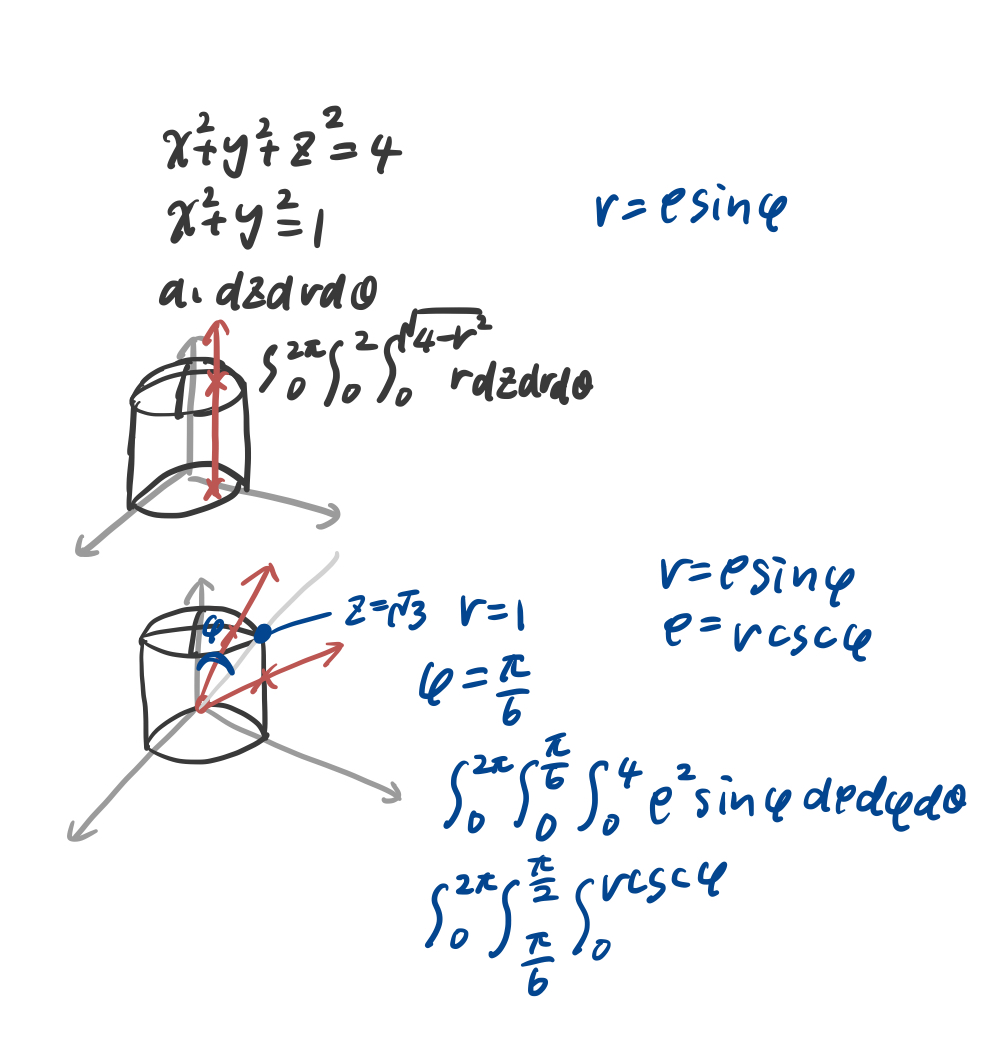 x²+y²+z²=4
r=ρsinφ
x²+y²=1
a. dzdrdθ
∫₀^{2π}∫₀^{2}∫₀^{√(4-r²)} rdzdrdθ
r=ρsinφ
φ z=√3 r=1
ρ=rcscφ
φ=π/6
∫₀^{2π}∫₀^{π/6}∫₀^{4} ρ²sinφdρdφdθ
∫₀^{2π}∫_{π/6}^{π/2}∫₀^{rcscφ}